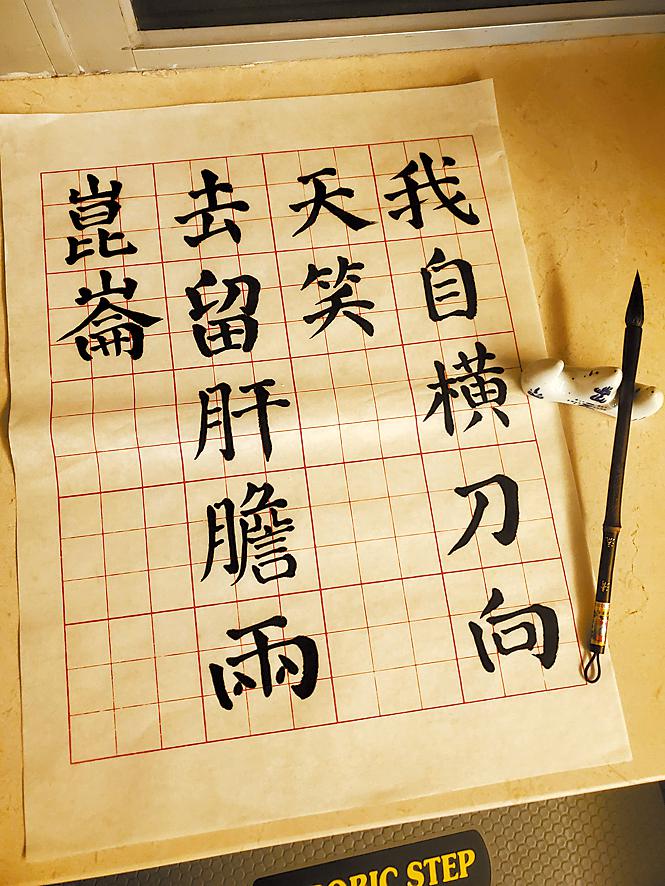 我自横刀向
天笑
去留肝膽兩
崑崙
OBIC STEP